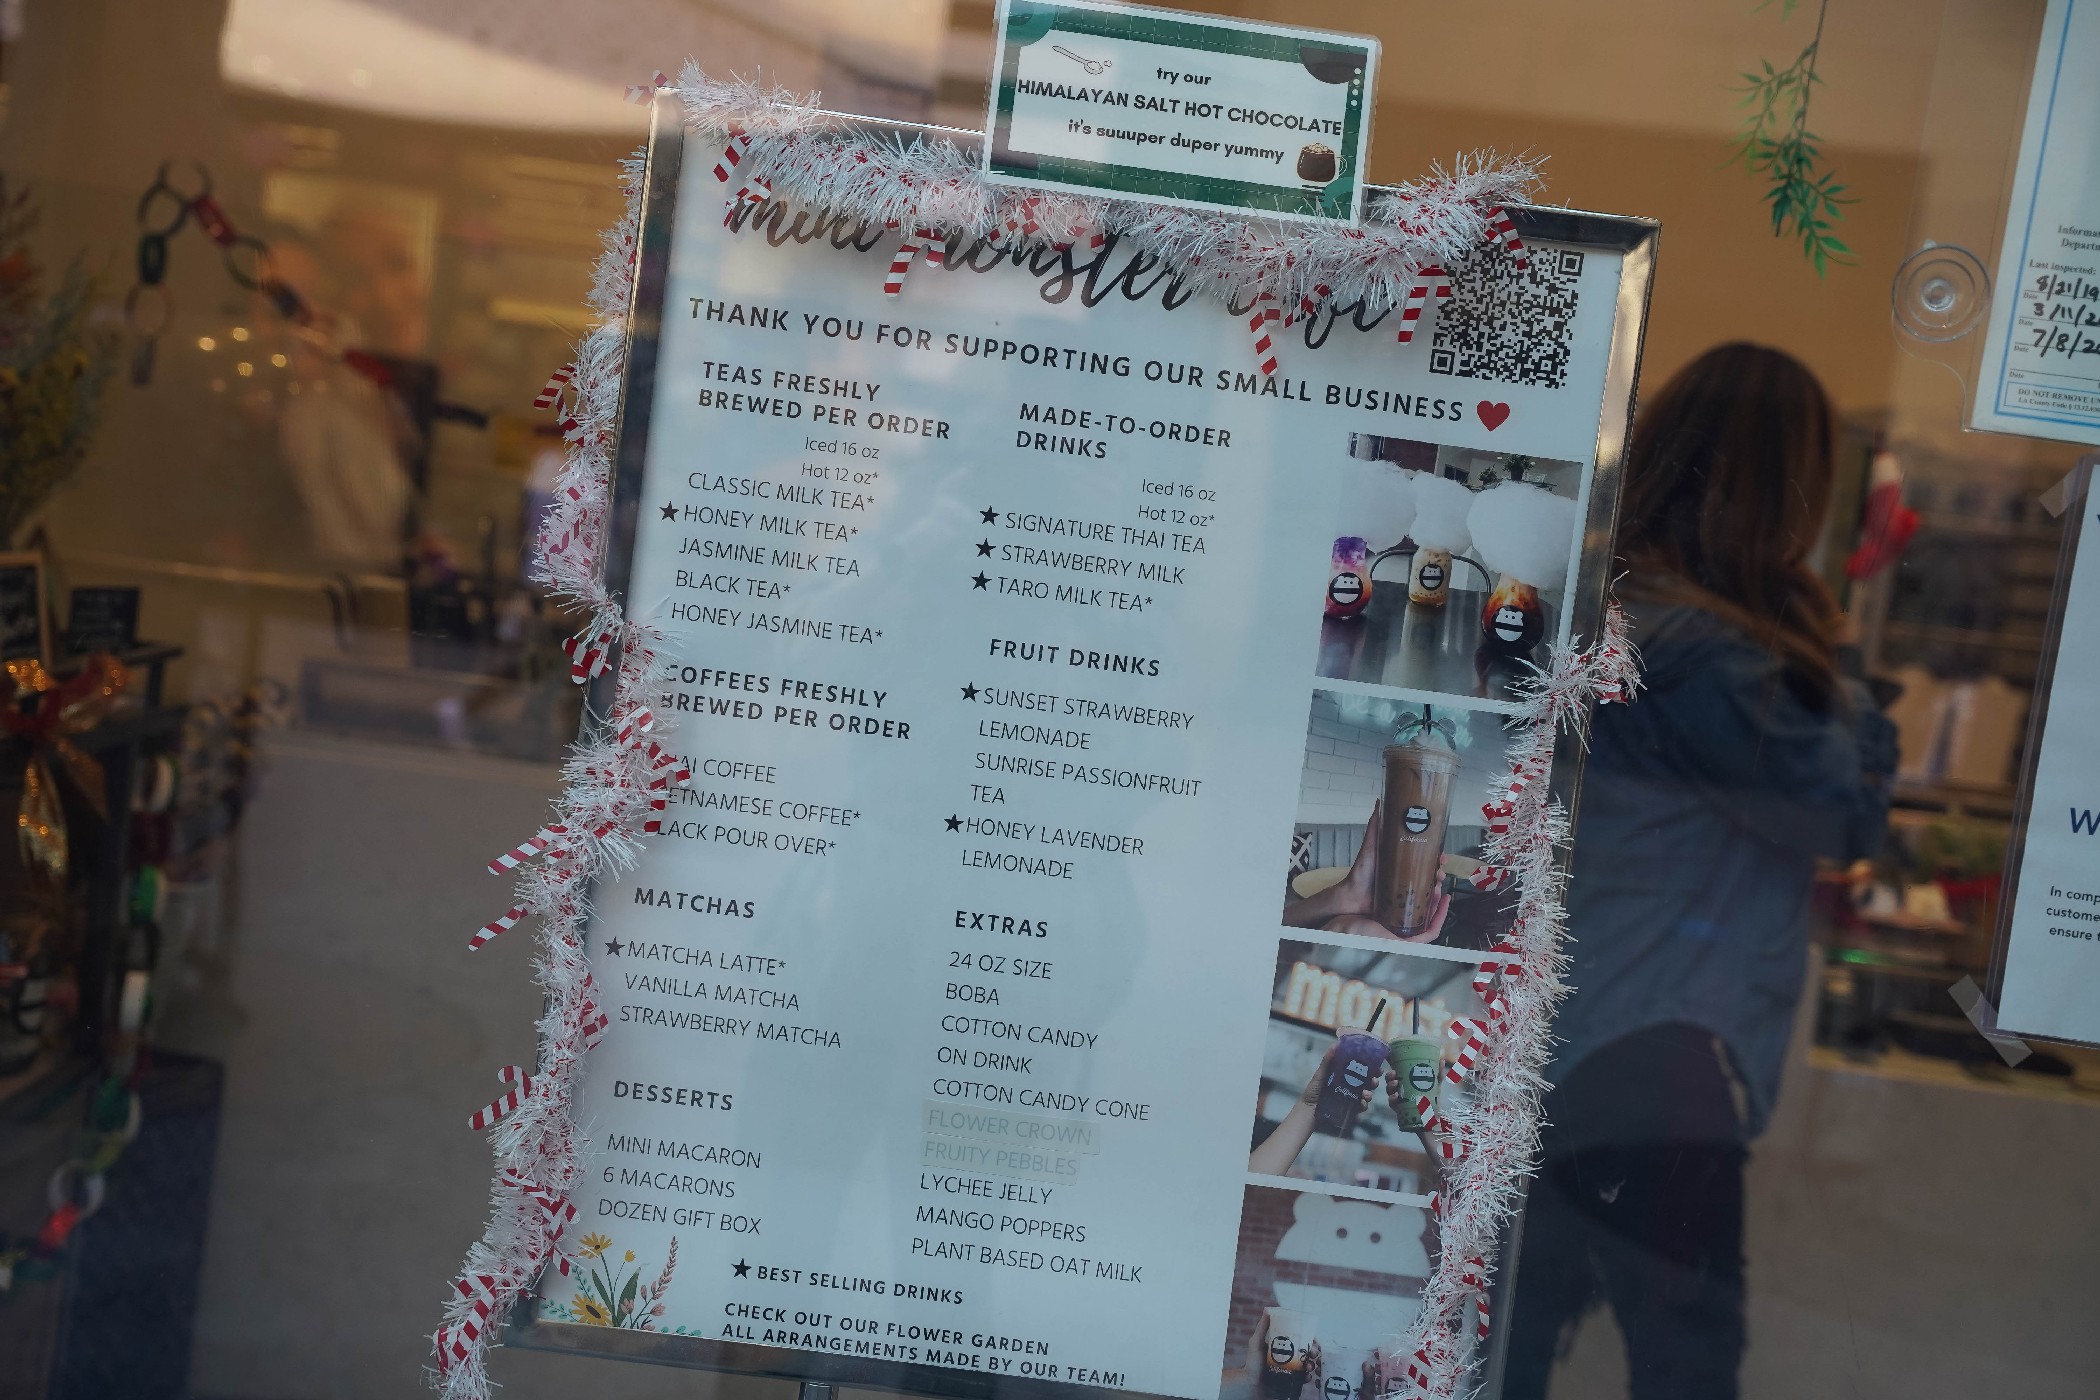 try our
HIMALAYAN SALT HOT CHOCOLATE
it's suuuper duper yummy
mini monster
THANK YOU FOR SUPPORTING OUR SMALL BUSINESS
TEAS FRESHLY
BREWED PER ORDER
Iced 16 oz
Hot 12 oz*
CLASSIC MILK TEA*
★HONEY MILK TEA*
JASMINE MILK TEA
BLACK TEA*
HONEY JASMINE TEA*
COFFEES FRESHLY
BREWED PER ORDER
AI COFFEE
ETNAMESE COFFEE*
LACK POUR OVER*
MATCHAS
★MATCHA LATTE*
VANILLA MATCHA
STRAWBERRY MATCHA
DESSERTS
MINI MACARON
6 MACARONS
DOZEN GIFT BOX
MADE-TO-ORDER
DRINKS
Iced 16 oz
Hot 12 oz*
★ SIGNATURE THAI TEA
★ STRAWBERRY MILK
★ TARO MILK TEA*
FRUIT DRINKS
★SUNSET STRAWBERRY
LEMONADE
SUNRISE PASSIONFRUIT
TEA
★HONEY LAVENDER
LEMONADE
EXTRAS
24 OZ SIZE
BOBA
COTTON CANDY
ON DRINK
COTTON CANDY CONE
FLOWER CROWN
FRUITY PEBBLES
LYCHEE JELLY
MANGO POPPERS
PLANT BASED OAT MILK
★ BEST SELLING DRINKS
CHECK OUT OUR FLOWER GARDEN
ALL ARRANGEMENTS MADE BY OUR TEAM!
monst
Last inspected:
8/21/19
3/11/2
7/8/2
Date
DO NOT REMOVE
LA County Code
W
In comp
custome
ensure t